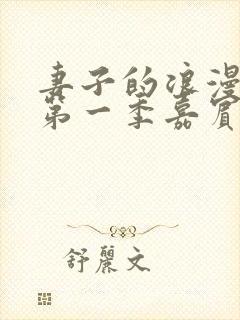 妻子的浪漫
第一季嘉宾
舒丽文